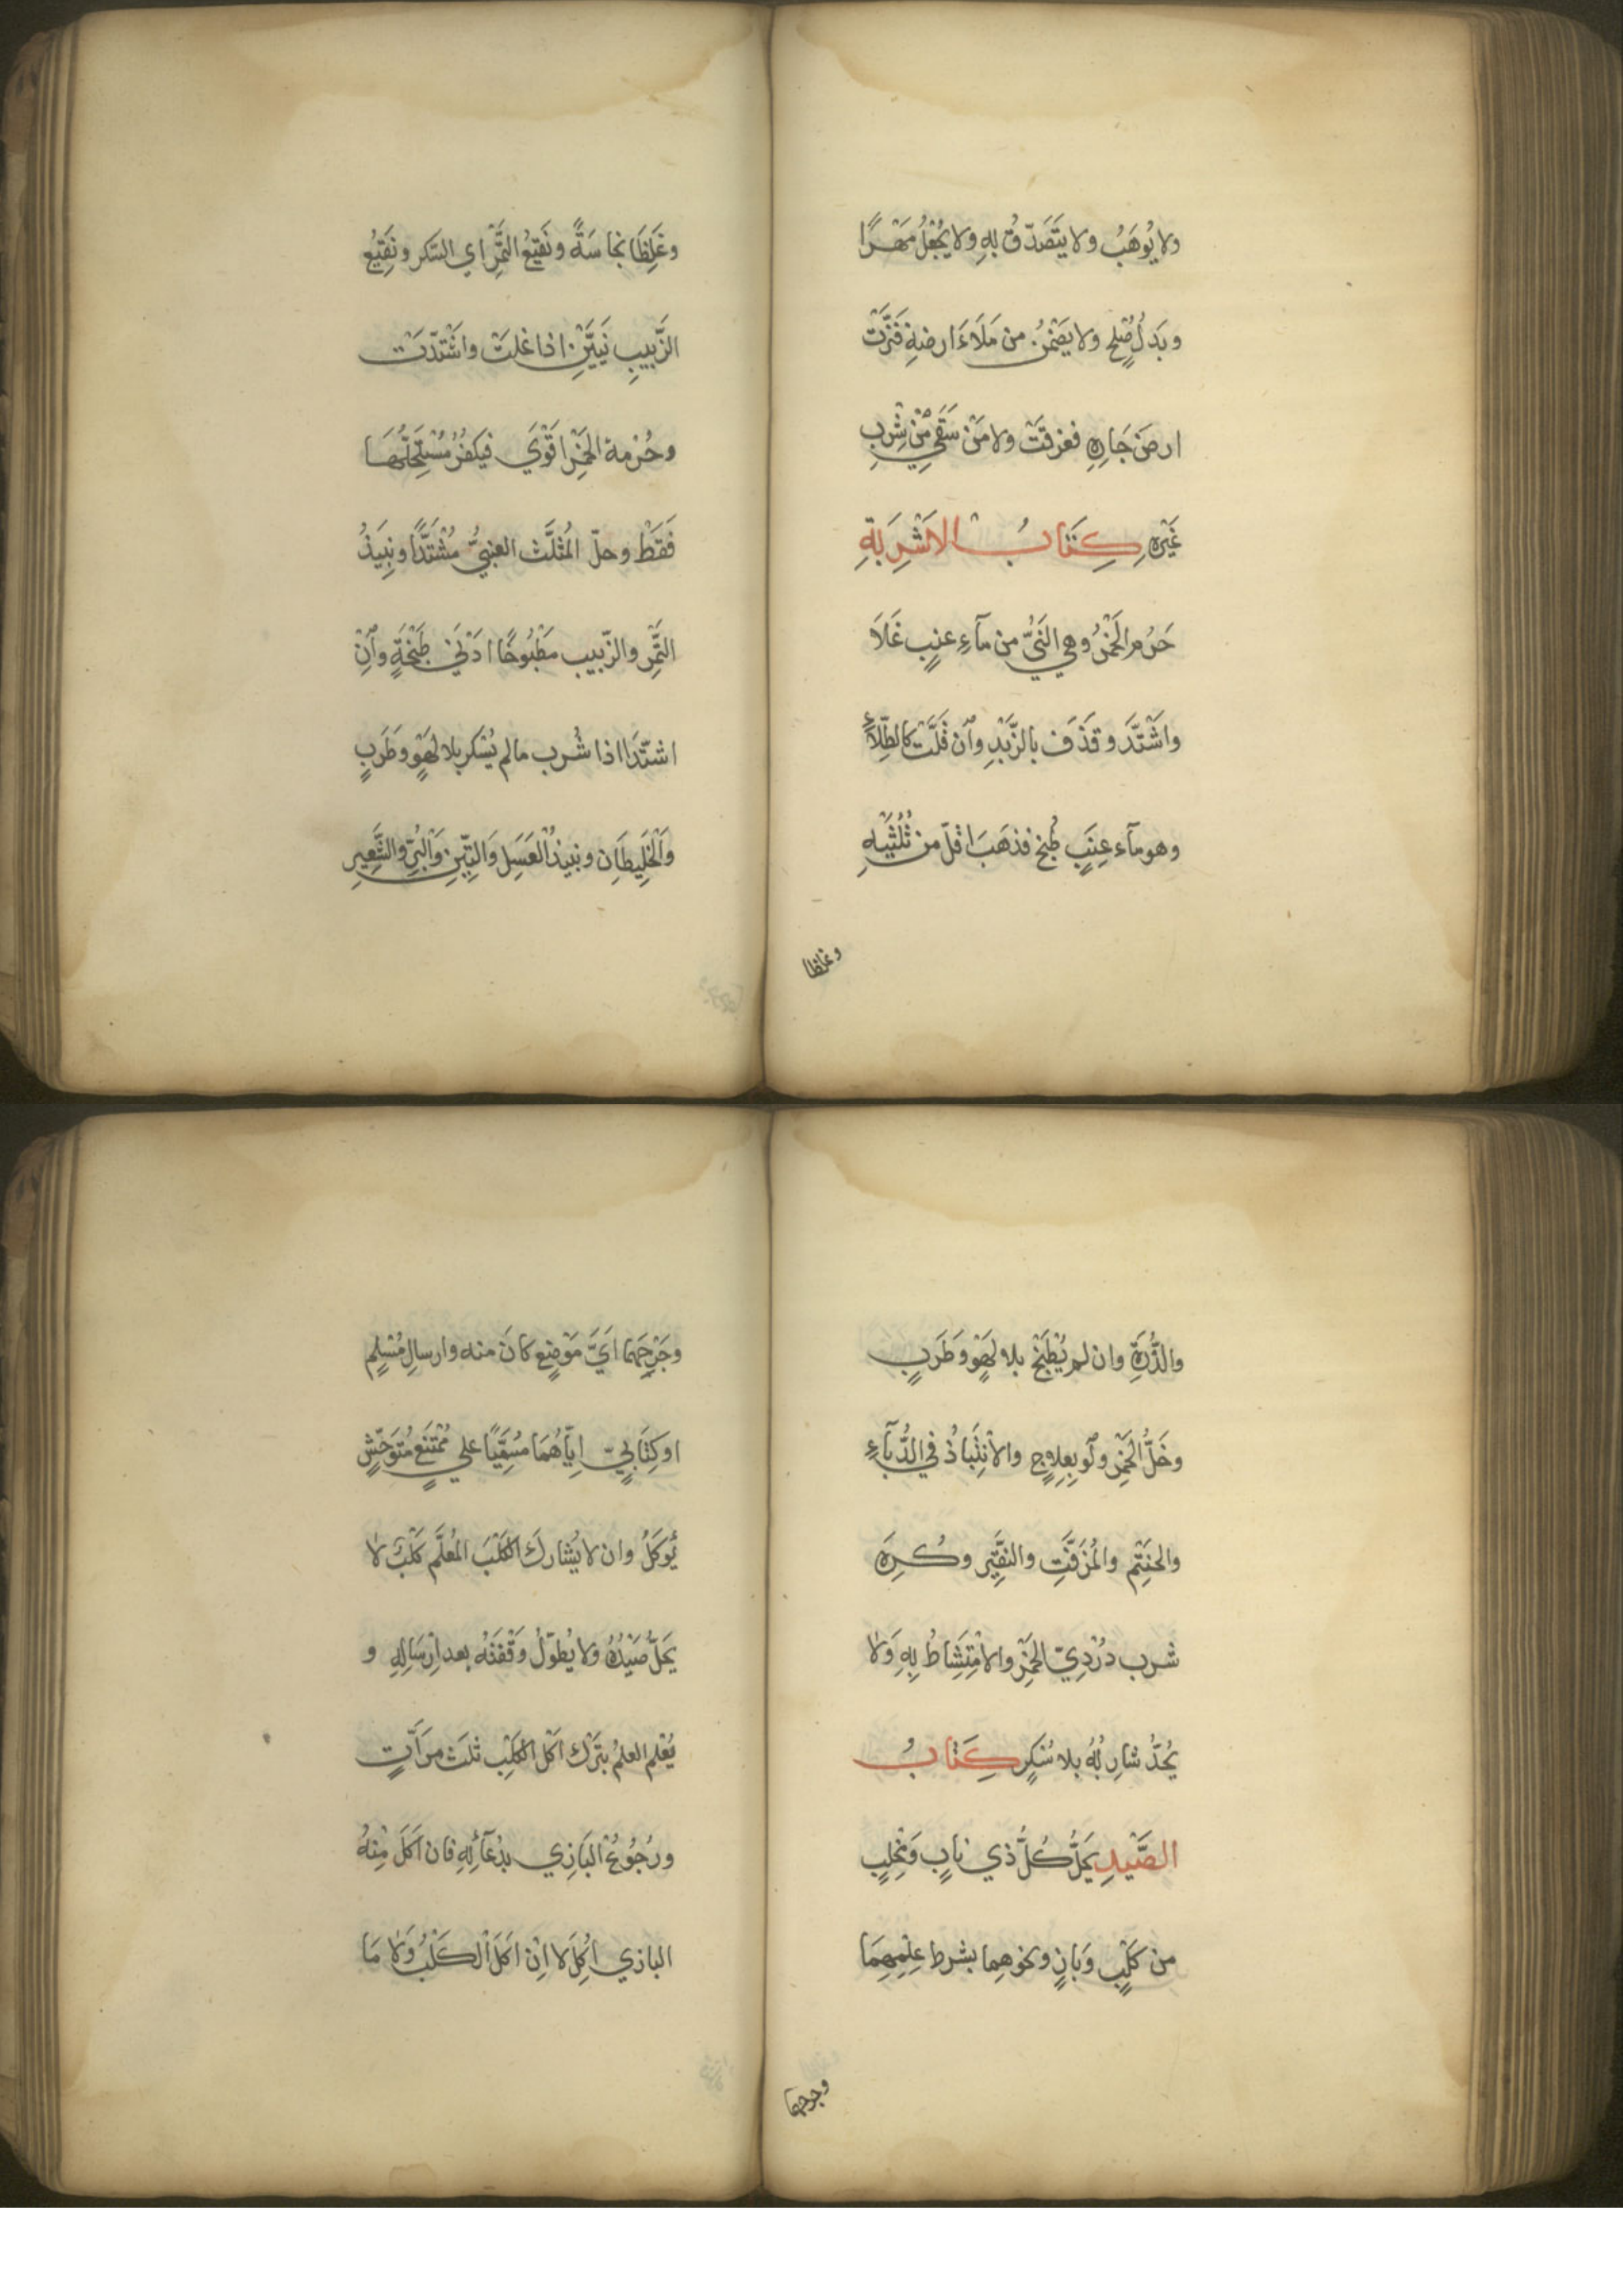 ولا يُوهَبُ ولا يَتَصَدّقُ بهِ ولا يُجْعَلُ مَهْرًا
وبَدَلُ صُلْحٍ ولا يَضْمَنُ من مَلَاءَ ارضهِ فَنَزَّتْ
ارضَ جَارِهِ فغرقتْ ولا مَنْ سَقَي مِنْ شِرْبِ
غَيْرِهِ كِتَابُ الاَشْرِبَةِ
حَرُمَ الخَمْرُ وهي النَّيُّ من مآءِ عنبٍ غَلَا
واشْتَدَّ وقَذَفَ بالزَّبَدِ وانْ قَلَّتْ كالطِّلَآءِ
وهو مآء عِنَبٍ طُبخ فذهَبَ اقلّ من ثُلُثَيْهِ
وغلظا
وغَلِظَا نجاسَةً ونَقيْعُ التَّمْرِ اي السَّكر ونَقِيْعُ
الزَّبيبِ نَيَّيْنِ اذا غلتْ واشْتَدّتْ
وحُرْمة الخَمْرِ اقْوَي فيكفُرُ مُسْتَحِلُّهَا
فَقَطْ وحلّ المُثلَّث العنبيُّ مُشْتَدًّا ونبِيذُ
التَّمْرِ والزّبيب مَطْبُوخًا ادْنَي طَبْخَةٍ وانِ
اشتدّا اذا شُرب مالم يُسْكر بلا لَهْوٍ وطَرَبٍ
وَالْخَلِيطَانِ ونبيذُ العَسَلِ وَالتِّيْنِ وَالْبُرِّ والشَّعِيرِ
والذُّرَةِ وان لم يُطْبَخْ بلا لَهْوٍ وطَرَبٍ
وخَلُّ الخَمْرِ ولَو بِعِلاجٍ والاْنْتِبَاذُ في الدُّبآءِ
والحنْتَمِ والمُزَفَّتِ والنقِّيرِ وكُرِهَ
شرب دُرْدِيّ الخَمْرِ والامْتِشَاطُ بِهِ وَلا
يُحَدُّ شارِبُهُ بلا سُكرٍ كِتَابُ
الصَّيْدِ يَحلُّ كُلُّ ذي نابٍ وَمخْلبٍ
من كَلْبٍ وَبازٍ ونحوهِما بشرط عِلْمِهِمَا
وجرحهما
وجَرْحِهَما ايّ مَوْضِعٍ كانَ منه وارسالِ مُسْلِمٍ
او كِتَابيّ ايّاهُمَا مُسَمِّيًا علي مُمْتَنعٍ مُتَوَحِّشٍ
يُؤكَلُ وان لا يُشَاركَ الكَلْبَ المُعَلَّم كلبٌ لا
يَحلُّ صَيْدُهُ ولا يُطوّلُ وَقْفَتُهُ بعد اِرسَالِهِ و
يُعْلم العلمُ بترْكِ اكلِ الكَلْبِ ثلثَ مرّاتٍ
ورُجُوعُ البَازِي بدُعآئِهِ فان اكَلَ مِنْهُ
البازي اُكِلَ لا انْ اكَلَ الكَلْبُ وَلا مَا